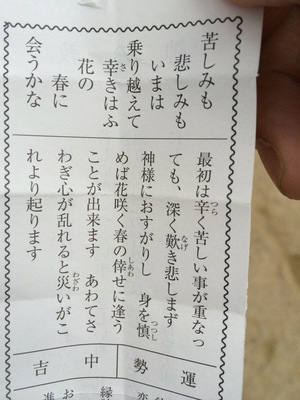 苦しみも
悲しみも
いまは
乗り越えて
幸きはふ
花の
春に
会うかな
最初は辛く苦しい事が重なっ
ても、深く歎き悲しまず
神様におすがりし 身を慎
めば花咲く春の倖せに逢う
ことが出来ます あわてさ
わぎ心が乱れると災いがこ
れより起ります
運勢
中吉